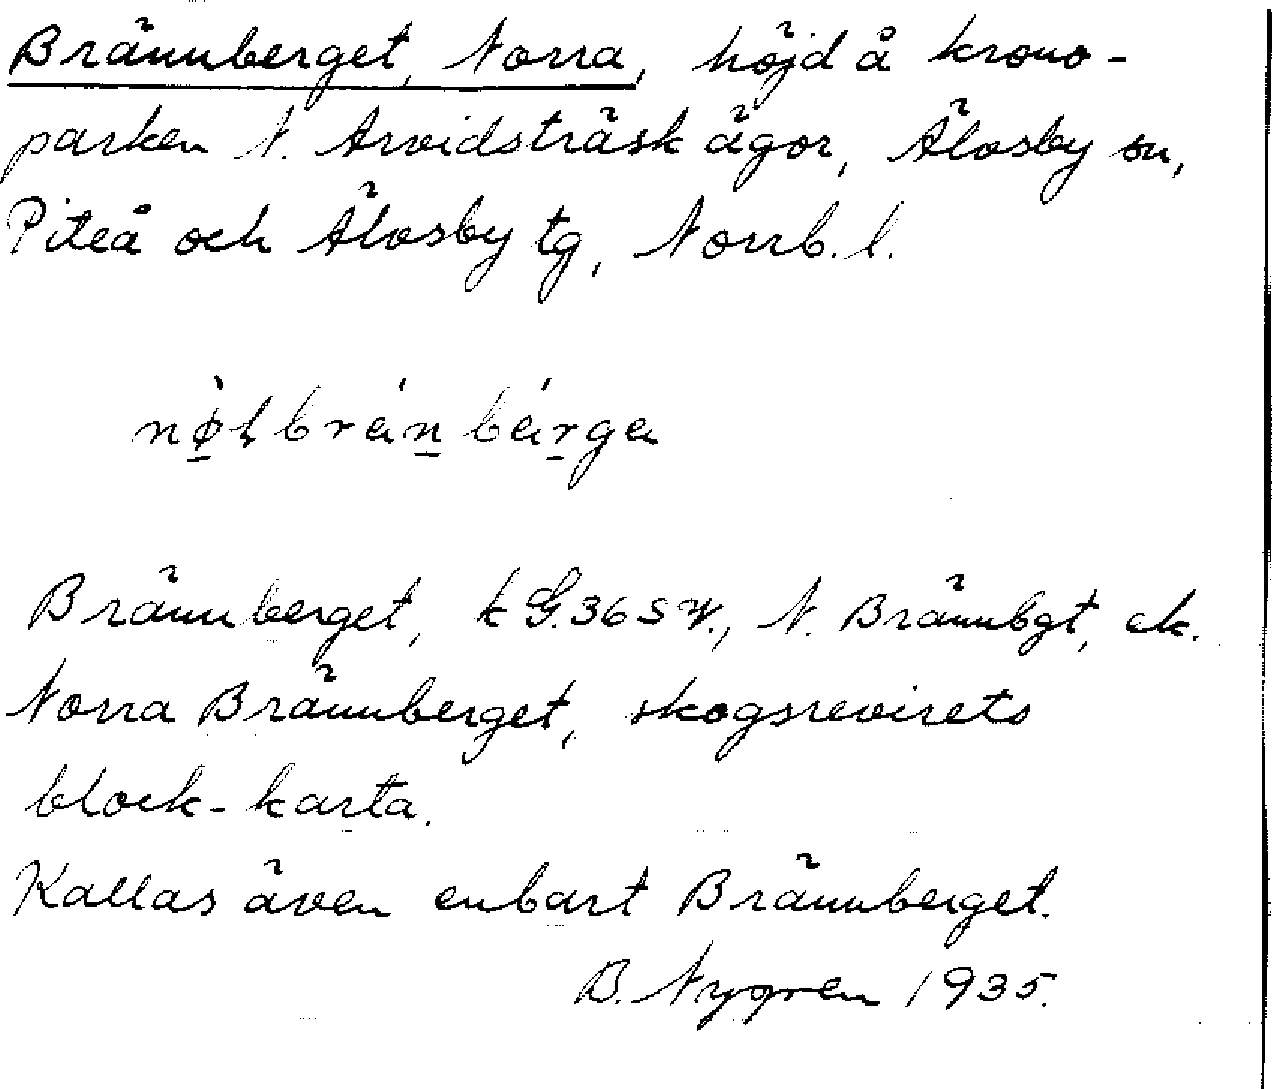 Brännberget, Norra, höjd å krono-
parken N. Arvidsträsk ägor, Älvsby sn,
Piteå och Älvsby tg, Norrb. l.
Brännberget, k G.36 SV., N. Brännbgt, ek.
Norra Brännberget, skogsrevirets
block-karta.
Kallas även enbart Brännberget.
B. Nygren 1935.